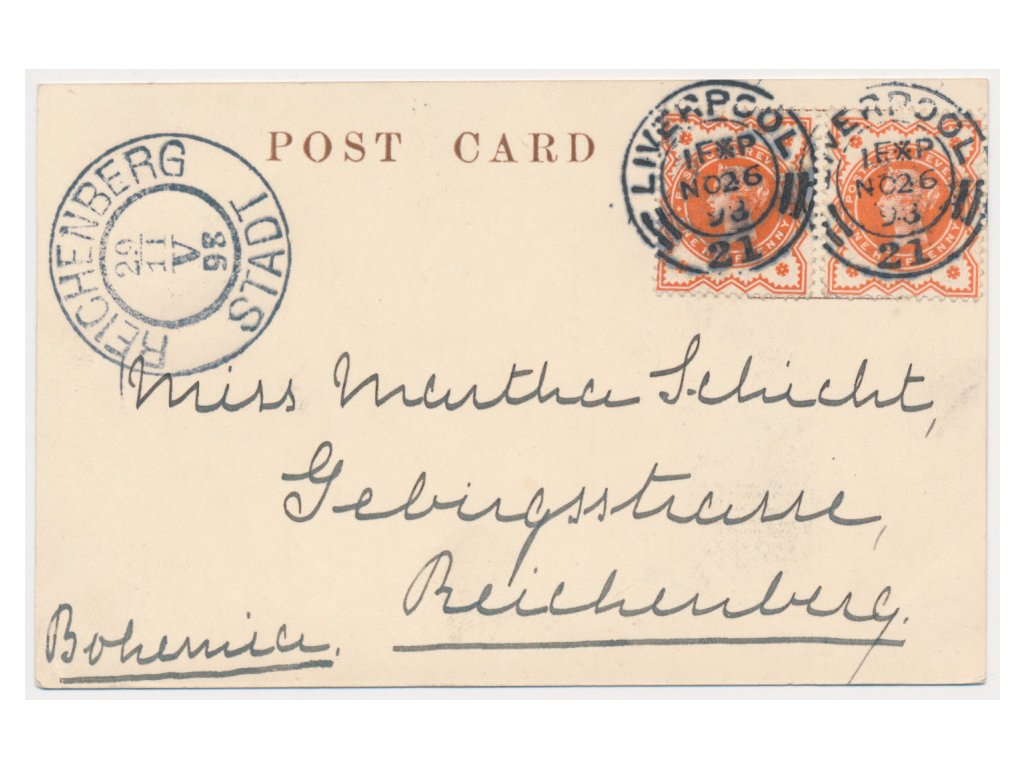 POST CARD
LIVERPOOL
1EXP
NO26
98
21
LIVERPOOL
1EXP
NO26
98
21
REICHENBERG
STADT
29
11
A
98
Miss Martha Schicht,
Gebirgsstrasse,
Reichenberg.
Bohemia.